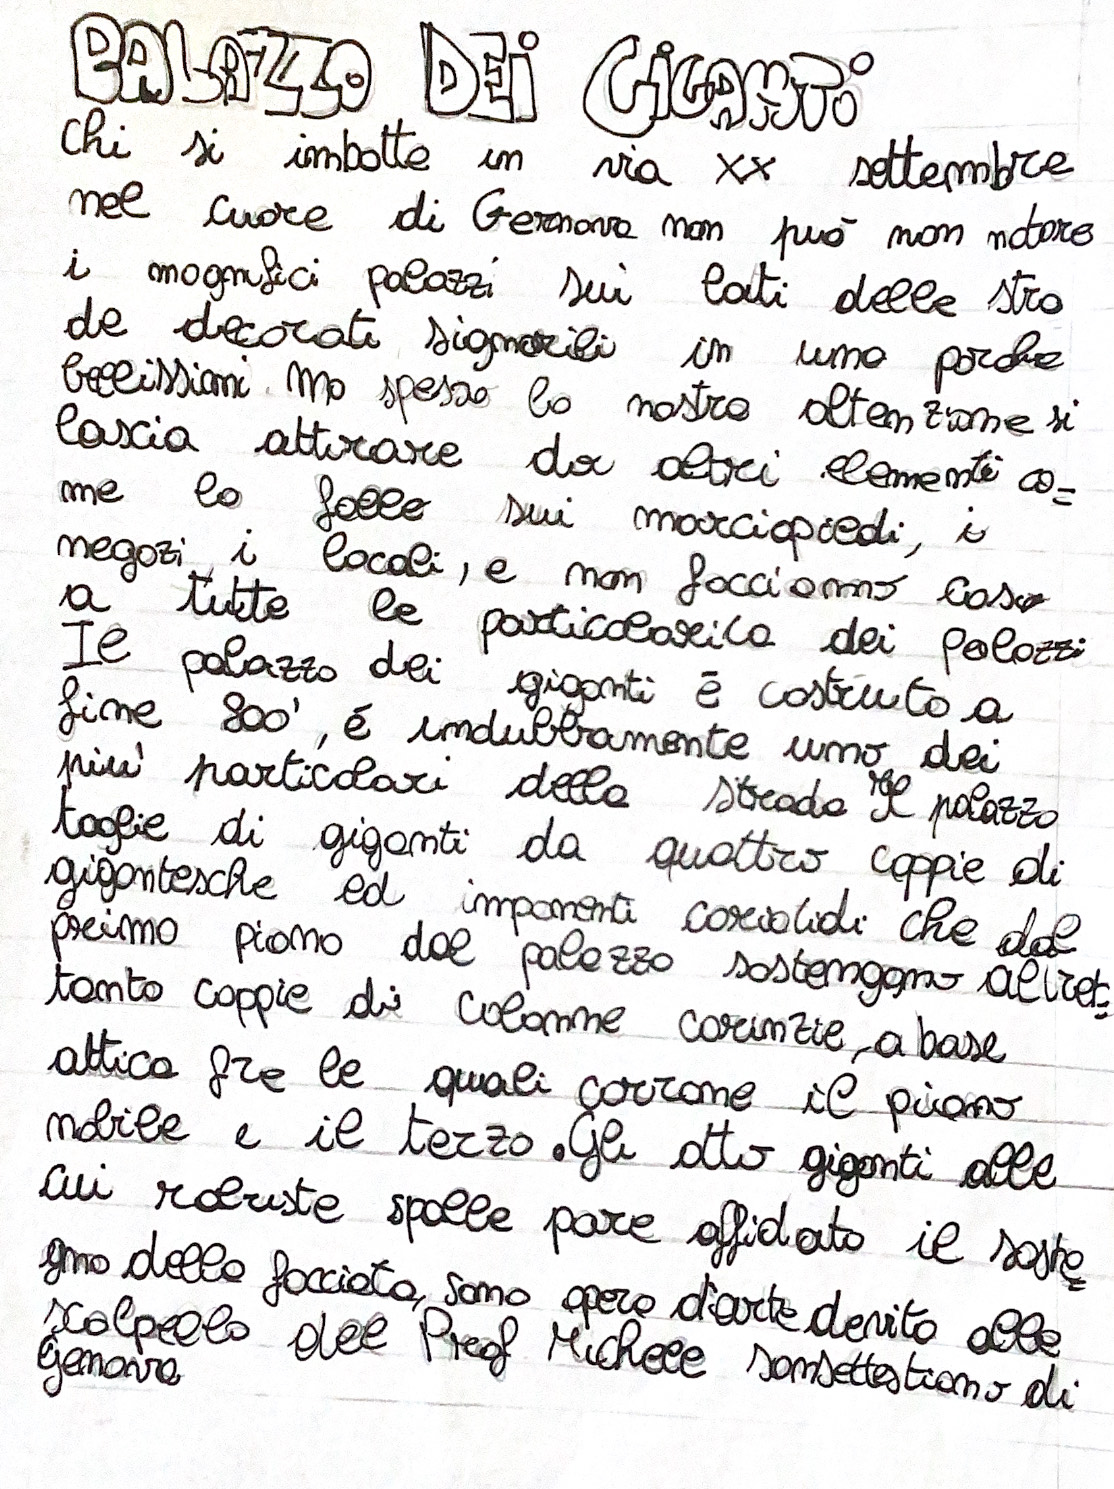 PALAZZO DEI GIGANTI
Chi si imbatte in via XX settembre
nel cuore di Genova non può non notare
i magnifici palazzi sui lati delle stra
de decorati signorili in una parola
bellissimi. Ma spesso la nostra attenzione si
lascia attirare da altri elementi co=
me la folla sui marciapiedi, i
negozi, i locali, e non facciamo caso
a tutte le particolarità dei palazzi
Il palazzo dei giganti è costruito a
fine 800', é indubbiamente uno dei
più particolari della strada Il palazzo
taglie di giganti da quattro coppie di
gigantesche ed imponenti cariatidi che dal
primo piano del palazzo sostengano altret=
tanto coppie di colonne corinzie, a base
attica fra le quali corrono il piano
nobile e il terzo. Gli otto giganti alle
cui robuste spalle pare affidato il soste=
gno della facciata, sono opera d'arte dovito alle
scalpello del Prof Michele sansettestiano di
Genova